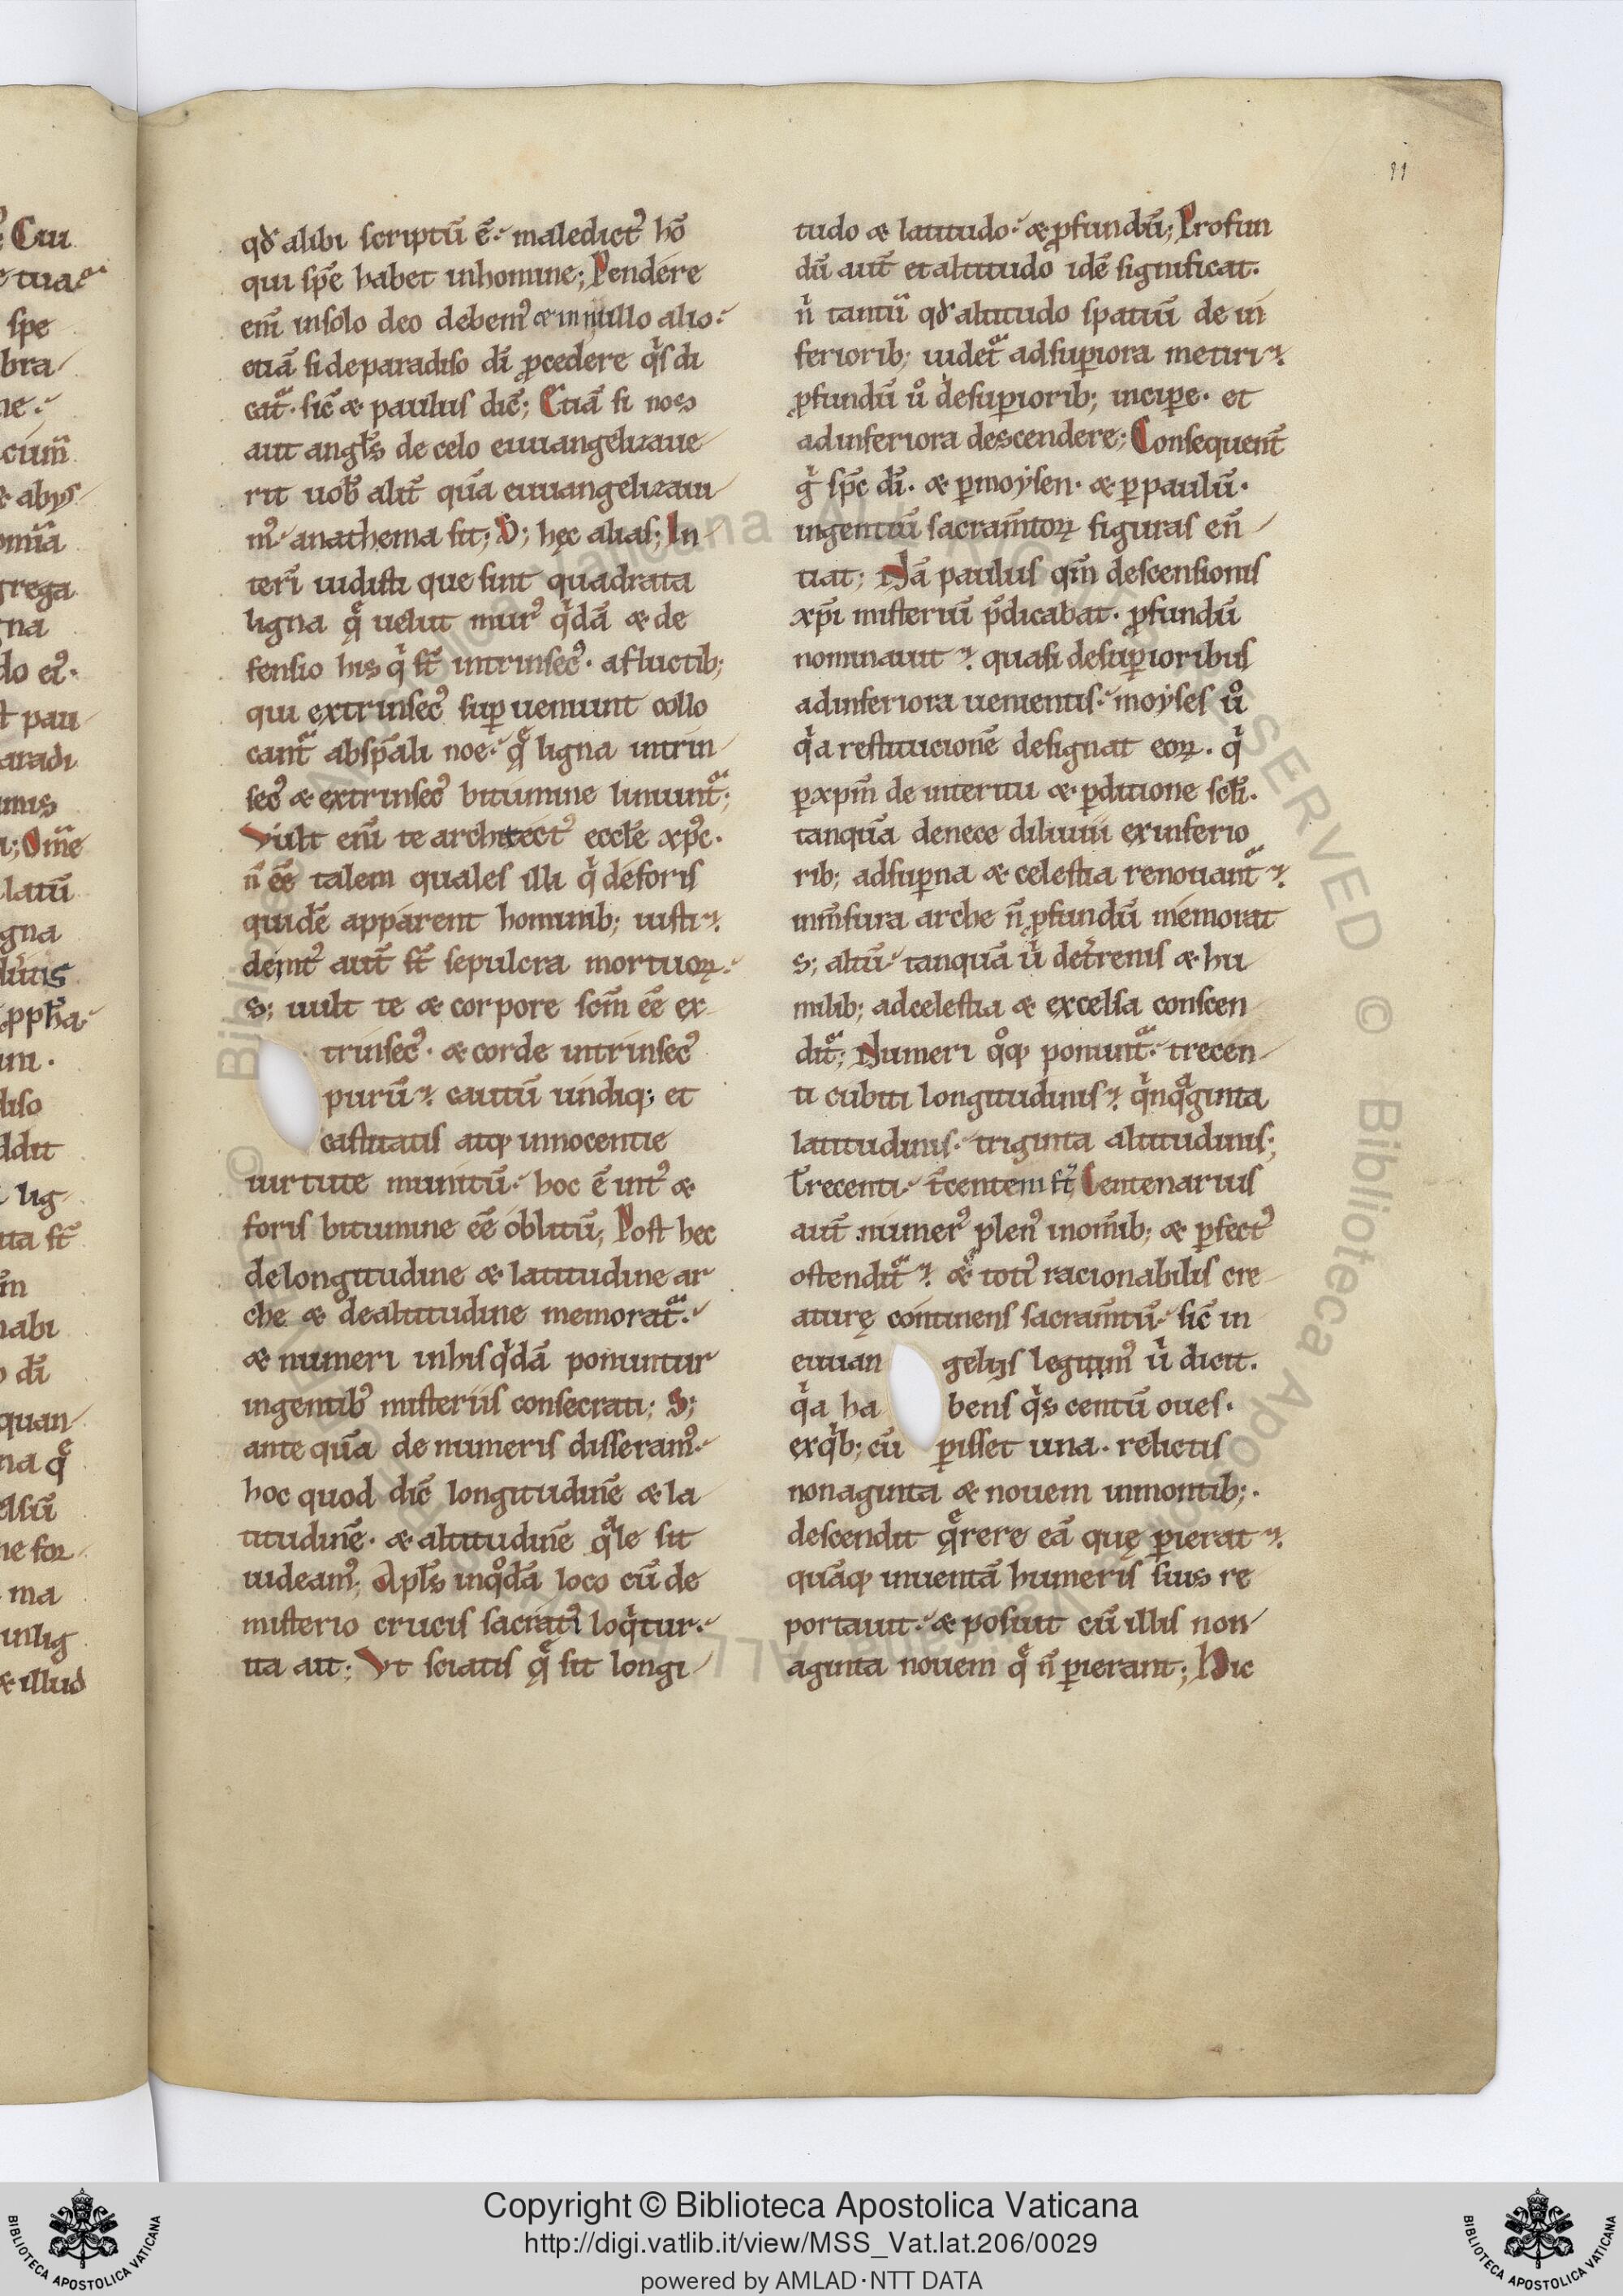 11
qđ alibi scriptū ē. maledict᷒ hō
qui spē habet inhomine; Pendere
enī insolo deo debem᷒ & in nullo alio.
etiā si deparadiso dī ꝓcedere q̍s di
cat᷑. sic̄ & paulus dic̄; Etiā si nos
aut angl̄s de celo euuangelizaue
rit uob̄ alit̄ quā euuangelizaui
m᷒. anathema sit; S; hęc alias; In
teri̅ uidisti que sint quadrata
ligna q̨̄ uelut mur᷒ q̍dā & de
fensio his q̍ st̄ intrinsec᷒. afluctib;
qui extrinsec᷒ suꝑueniunt collo
cant᷑ abspāli noe. q̨̄ ligna intrin
sec᷒ & extrinsec᷒ bitumine liniunt᷑;
Vult enī te architect᷒ eccłe xp̄c.
n̄ eē talem quales illi q̍ deforis
quidē apparent hominib; iusti.
deint᷒ aut̄ st̄ sepulcra mortuoꝝ.
S; uult te & corpore sc̄m eē ex
trinsec᷒. & corde intrinsec᷒
purū. cautū undiq; et
castitatis atq; innocentie
uirtute munitū. hoc ē int᷒ &
foris bitumine eē oblitū; Post hec
delongitudine & latitudine ar
che & dealtitudine memorat᷑.
& numeri inhis q̍dā ponuntur
ingentib᷒ misteriis consecrati; S;
ante quā de numeris disseram᷒.
hoc quod dic̄ longitudinē & la
titudinē. & altitudinē qͣle sit
uideam᷒; Apl̄s inqͦdā loco cū de
misterio crucis sacrati᷒ loq̍tur.
ita ait; Vt sciatis q̨̄ sit longi
tudo & latitudo. & ꝓfundū; Profun
dū aut̄ et altitudo idē significat.
n̄ tantū qđ altitudo spatiū de in
feriorib; uidet᷑ adsuꝑiora metiri.
ꝓfundū uͦ desuꝑiorib; inciꝑe. et
adinferiora descendere; Consequent̄
g̍ spc̄ dī. & ꝑmoysen. & ꝑpaulū.
ingentiū sacram̄toꝝ figuras en̄
tiat; Nā paulus qm̄ descensionis
xp̄i misteriū p̄dicabat. ꝓfundū
nominauit. quasi desuꝑioribus
adinferiora uenientis. moyses uͦ
q̍a restitucionē designat eoꝝ. q̍
ꝑxpm̄ de interitu & ꝑditione scl̄i.
tanquā denece diluuii exinferio
rib; adsuꝑna & celestia renouant᷑.
inm̄sura arche n̄ ꝓfundū memorat
s; altū. tanquā u̍ det̍renis & hu
milib; adcelestia & excelsa conscen
dit᷑; Numeri qͦq; ponunt᷑. trecen
ti cubiti longitudinis. q̍nqͣginta
latitudinis. triginta altitudinis;
Trecenti. t̍centeni st̄; Centenarius
aut̄ numer᷒ plen᷒ inom̄ib; & ꝑfect᷒
ostendit᷑. & toti᷒ racionabilis cre
aturę continens sacram̄tū. sic̄ in
euuan gelijs legim᷒ u̍ dicit.
q̍a ha bens q̍s centū oues.
exq̍b; cū ꝑisset una. relictis
nonaginta & nouem inmontib;.
descendit q̨̄rere eā quę ꝑierat.
quāq; inuentā humeris suis re
portauit. & posuit cū illis non
aginta nouem q̨̄ n̄ ꝑierant; Hic
Copyright © Biblioteca Apostolica Vaticana
http://digi.vatlib.it/view/MSS_Vat.lat.206/0029
powered by AMLAD·NTT DATA
BIBLIOTECA APOSTOLICA VATICANA
BIBLIOTECA APOSTOLICA VATICANA